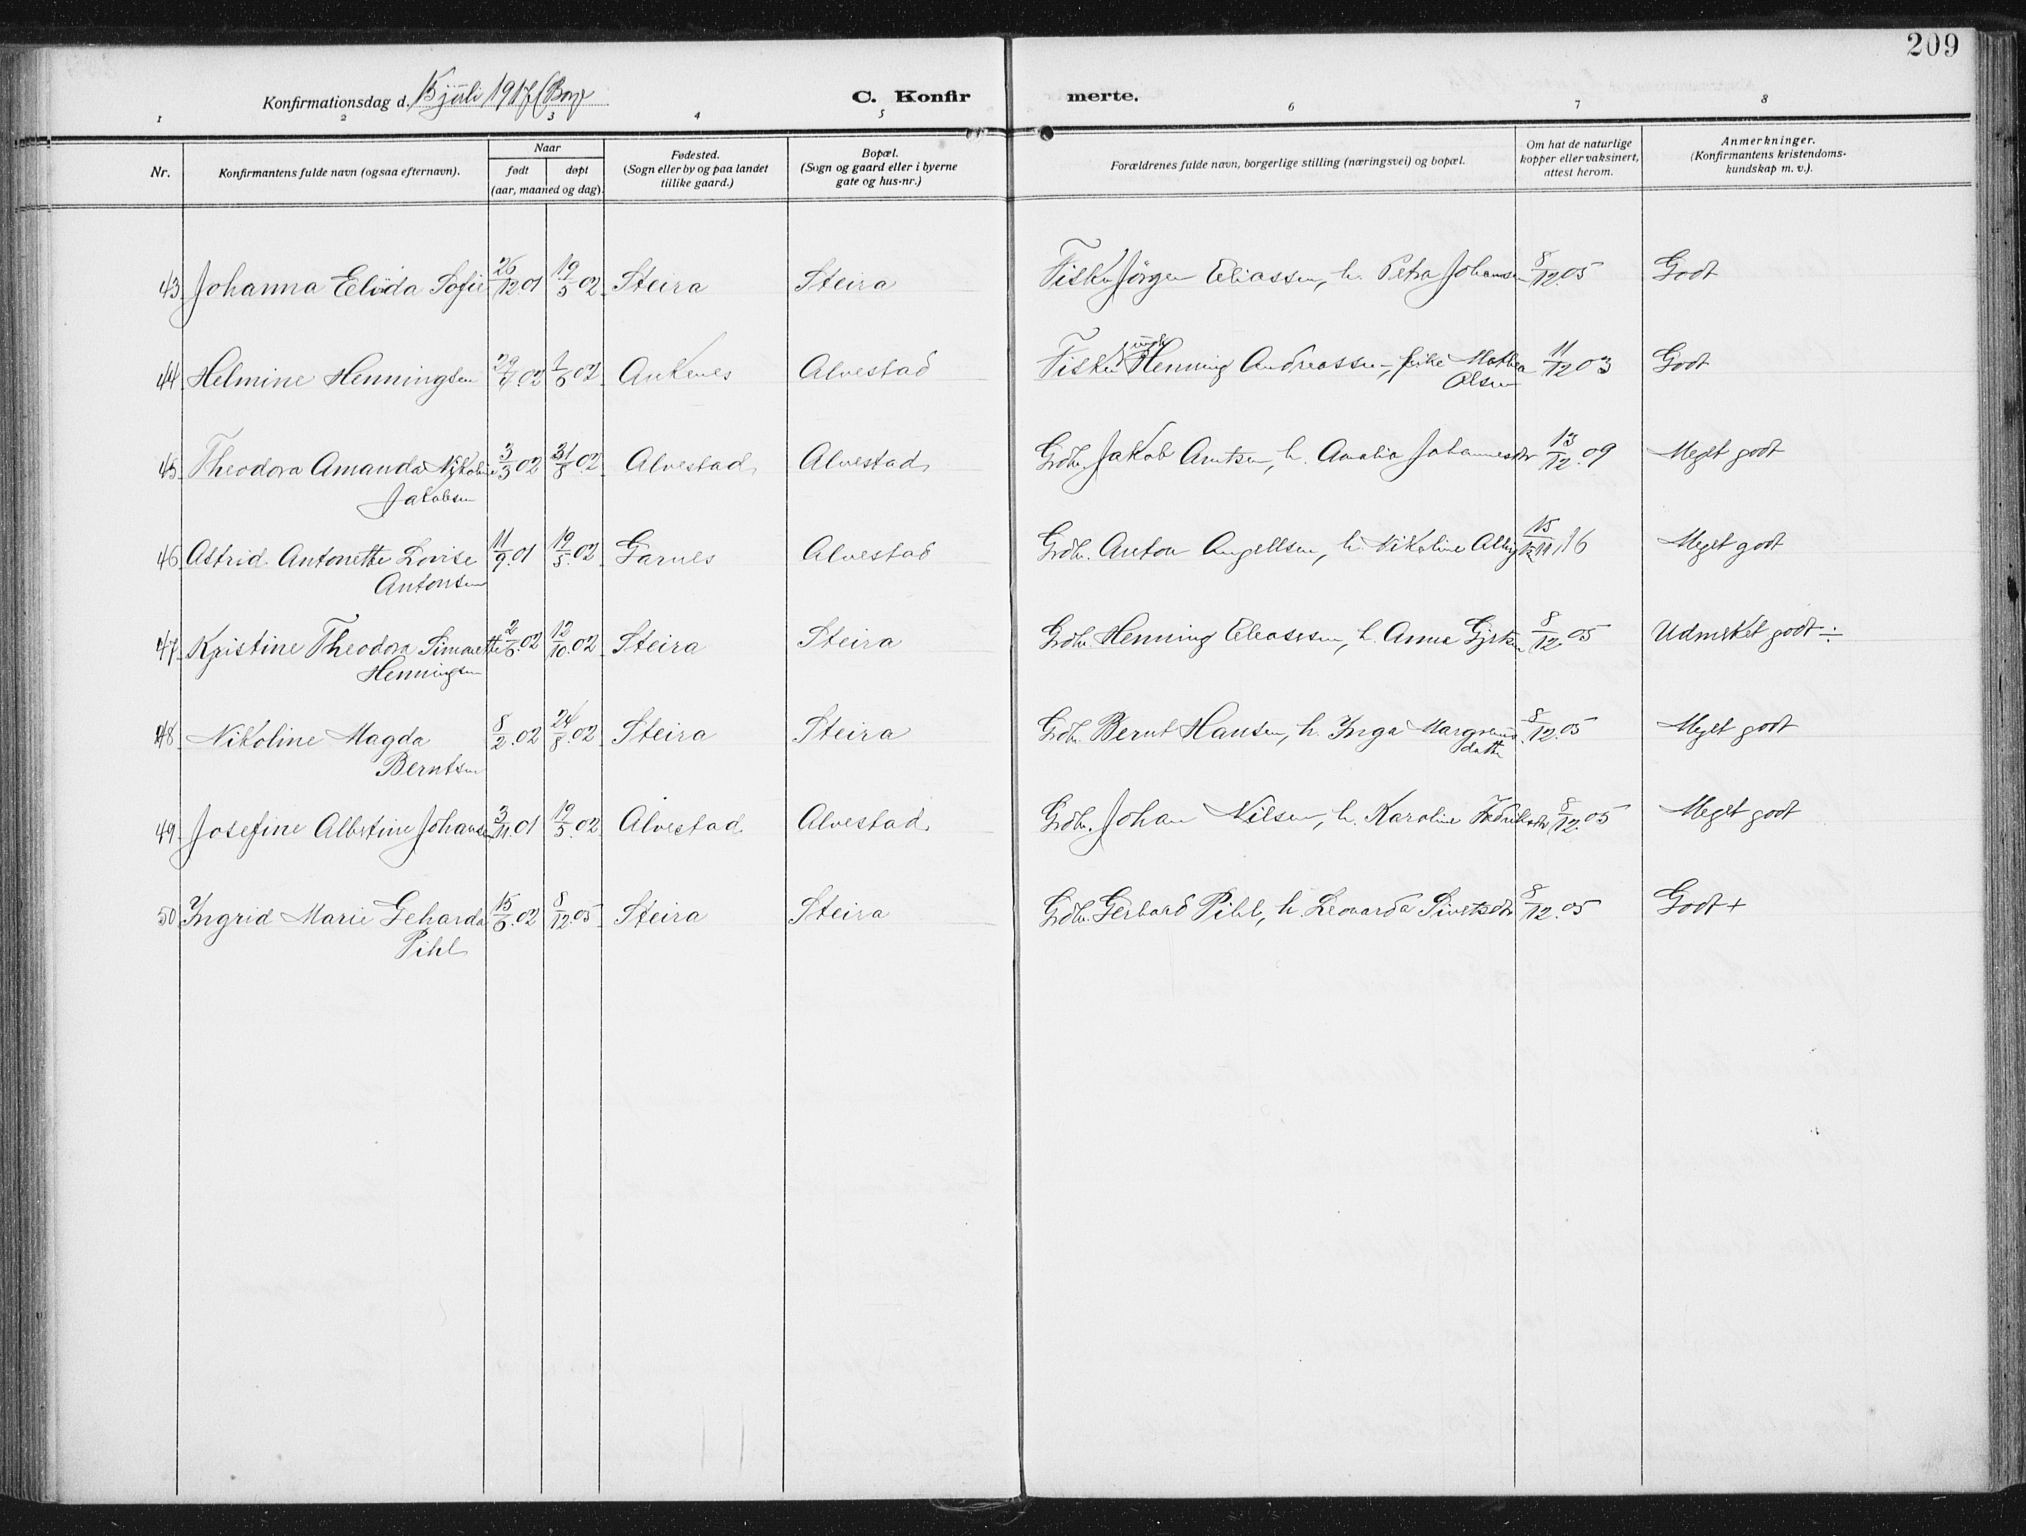 209
Konfirmationsdag d. 15 juli 1917 (Borge
C. Konfir merte.
1 2 3 4 5 6 7 8
Nr. Konfirmantens fulde navn (ogsaa efternavn). Naar født døpt (aar, maaned og dag). Fødested. (Sogn eller by og paa landet tillike gaard.) Bopæl. (Sogn og gaard eller i byerne gate og hus-nr.) Forældrenes fulde navn, borgerlige stilling (næringsvei) og bopæl. Om hat de naturlige kopper eller vaksinert, attest herom. Anmerkninger. (Konfirmantens kristendoms-kundskap m. v.).
43 Johanna Elida Sofie 26/12 01 19/5 02 Steira Steira Fisker Jörgen Eliassen, h. Petra Johansen 8/12.05 Godt
44 Helmine Henningsen 29/4 02 1/6 02 Ankenes Alvestad Fisker ungk Henning Andreassen, pike Mathea Olsen 11/12 03 Godt
45 Theodora Amanda Nikoline 3/3 02 31/8 02 Alvestad Alvestad Grdbr. Jakob Arntsen, h. Amalia Johannesdtr 13/12.09 Meget godt
Jakobsen
46 Astrid Antonette Lovise 11/9.01 19/5.02 Garnes Alvestad Grdbr. Anton Angellsen, h. Nikoline 15/11.16 Meget godt
Antonsen
47 Kristine Theodora Simonette 2/6.02 12/10.02 Steira Steira Grdbr. Henning Eliassen, h. Anna 8/12.05 Udmerket godt ÷
Henningsen
48 Nikoline Magda 8/2.02 24/8.02 Steira Steira Grdbr. Bernt Hansen, h. Inga 8/12.05 Meget godt
Berntsen
49 Josefine Albertine Johansen 3/11.01 19/5.02 Alvestad Alvestad Grdbr. Johan Nilsen, h. Karoline Fredriksdtr 8/12.05 Meget godt
50 Ingrid Marie Geharda 15/6.02 8/12.05 Steira Steira Grdbr. Gerhard Pihl, h. Leonarda Sivertsdtr 8/12.05 Godt +
Pihl